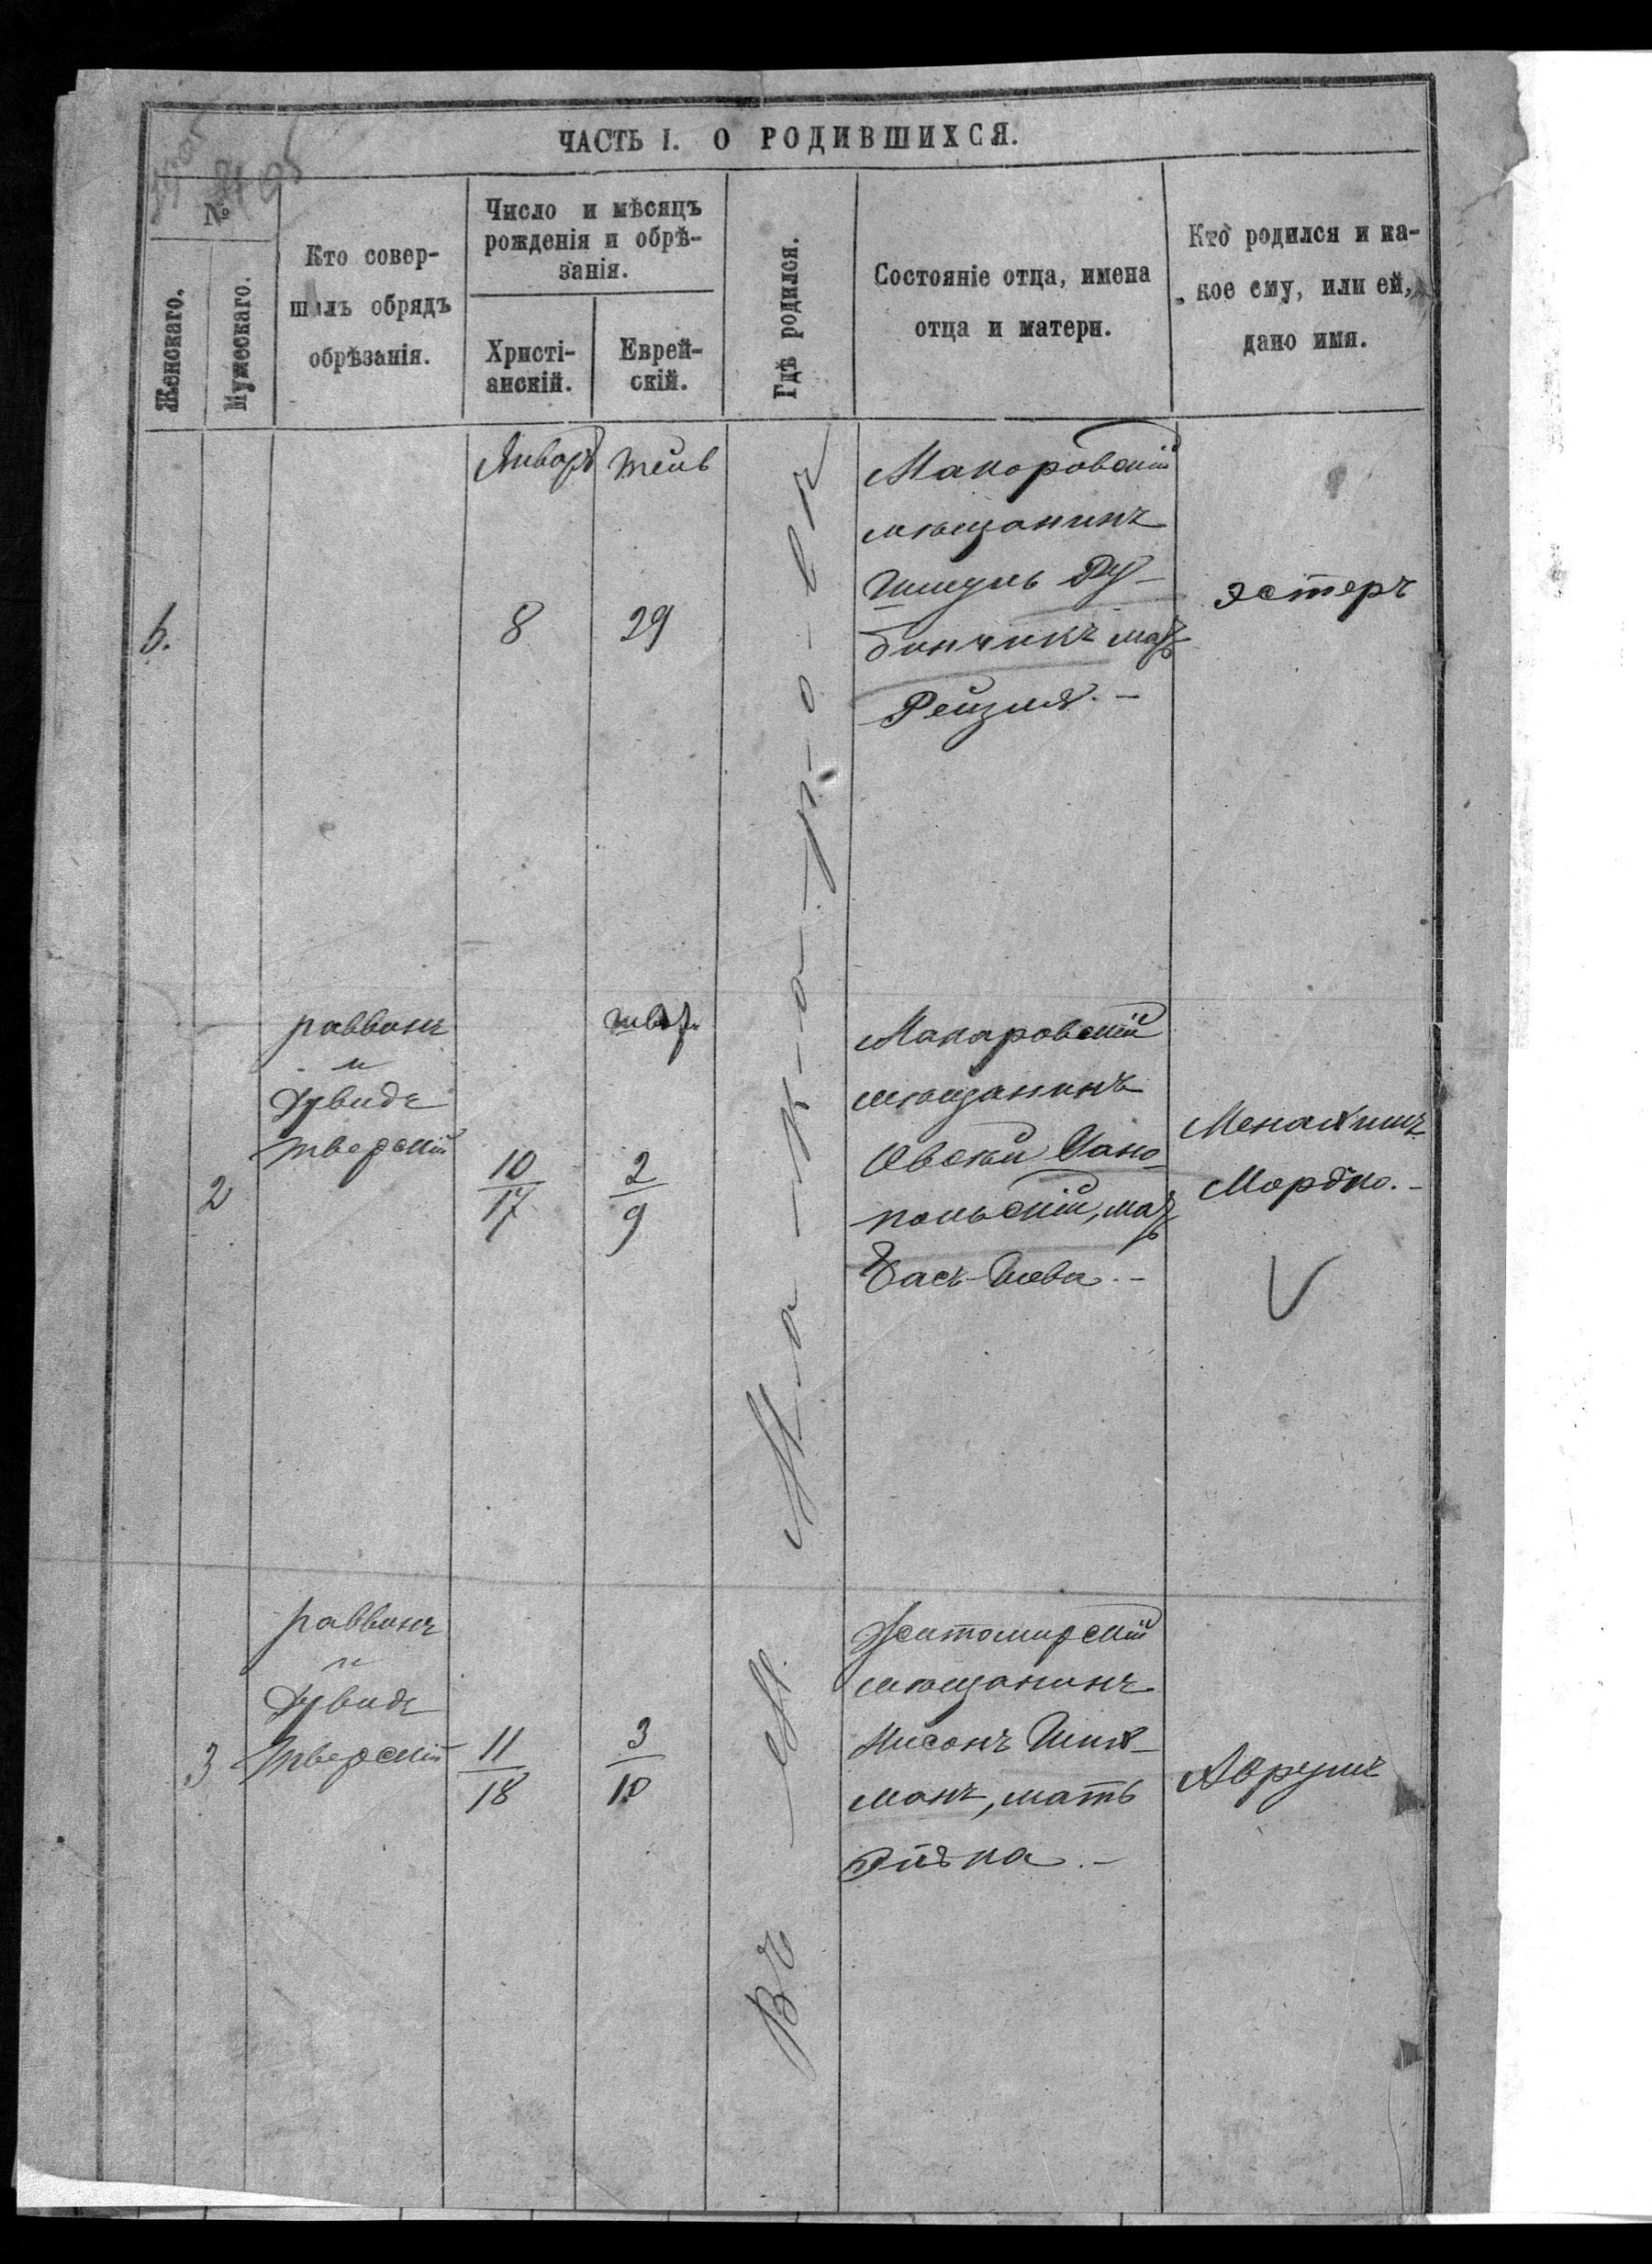 ЧАСТЬ I. О РОДИВШИХСЯ.
№
Женскаго.
Мужескаго.
Кто совер-
шалъ обрядъ
обрѣзанія.
Число и мѣсяцъ
рожденія и обрѣ-
занія.
Христі-
анскій.
Еврей-
скій.
Гдѣ родился.
Состояніе отца, имена
отца и матери.
Кто родился и ка-
кое ему, или ей,
дано имя.
Январ
8
29
Макоровскій
мѣщанинъ
Шмуль Ру-
бинчикъ мать
Рейзля. -
эстеръ
Въ м. Ма-к-а-р-о-вѣ
2
раввинъ
и
Дувидъ
Тверскій
10
17
2
9
Макаровскій
мѣщанинъ
Овсей
польскій, мать
Бась-Шева. -
Менахимъ
Мордко. -
3
раввинъ
и
Дувидъ
Тверскій
11
18
3
10
Житомирскій
мѣщанинъ
Нисонъ
манъ, мать
Аврумъ